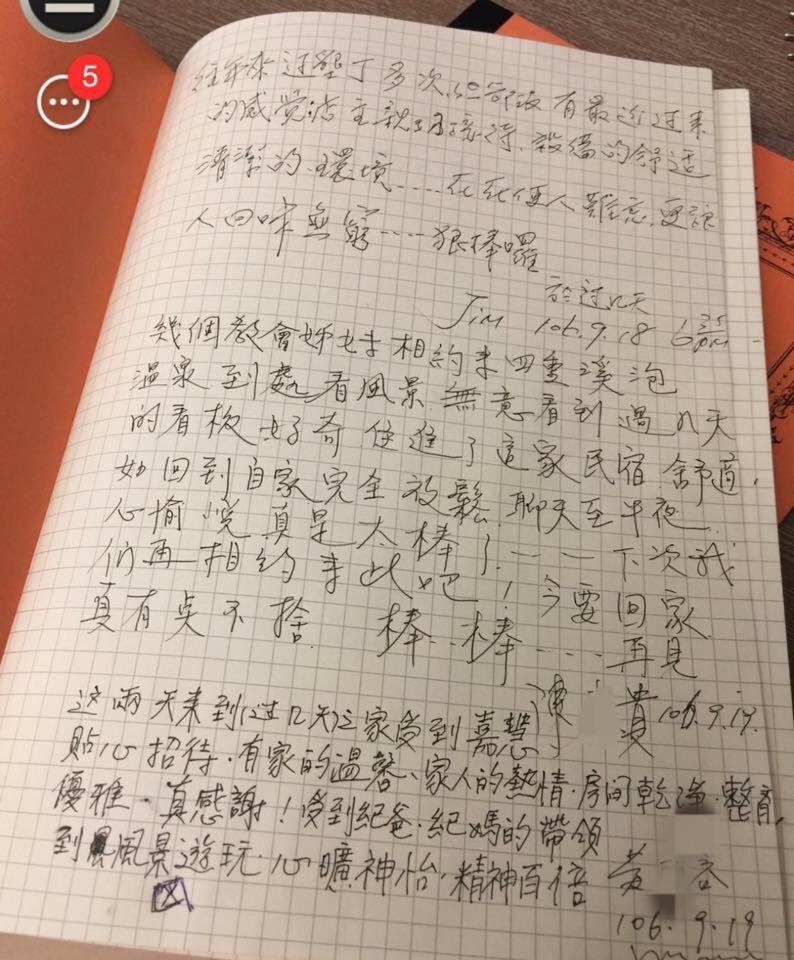 5
往年來过墾丁多次,但都沒有最近过来
的感觉店主親切接待.設備的舒适
清潔的.環境....在在使人難忘,更讓
人回味無窮----狠棒囉
於过几天
Jim 106.9.18 6 35 pm
幾個教會姊妹相約来四重溪泡
温泉到處看風景無意看到過几天
的看板好奇住進了這家民宿舒適,
如回到自家完全放鬆聊天至半夜
心愉悦真是太棒了---下次我
們再相約来此吧!今要回家
真有点不捨. 棒..棒----再見
陳 貴 106.9.19.
这兩天来到(过几天)之家受到嘉慧
貼心招待.有家的温馨、家人的熱情.房间乾淨.整齊,
優雅.真感謝!受到紀爸.紀媽的帶领
到風景遊玩.心曠神怡.精神百倍
黄 容
106.9.19